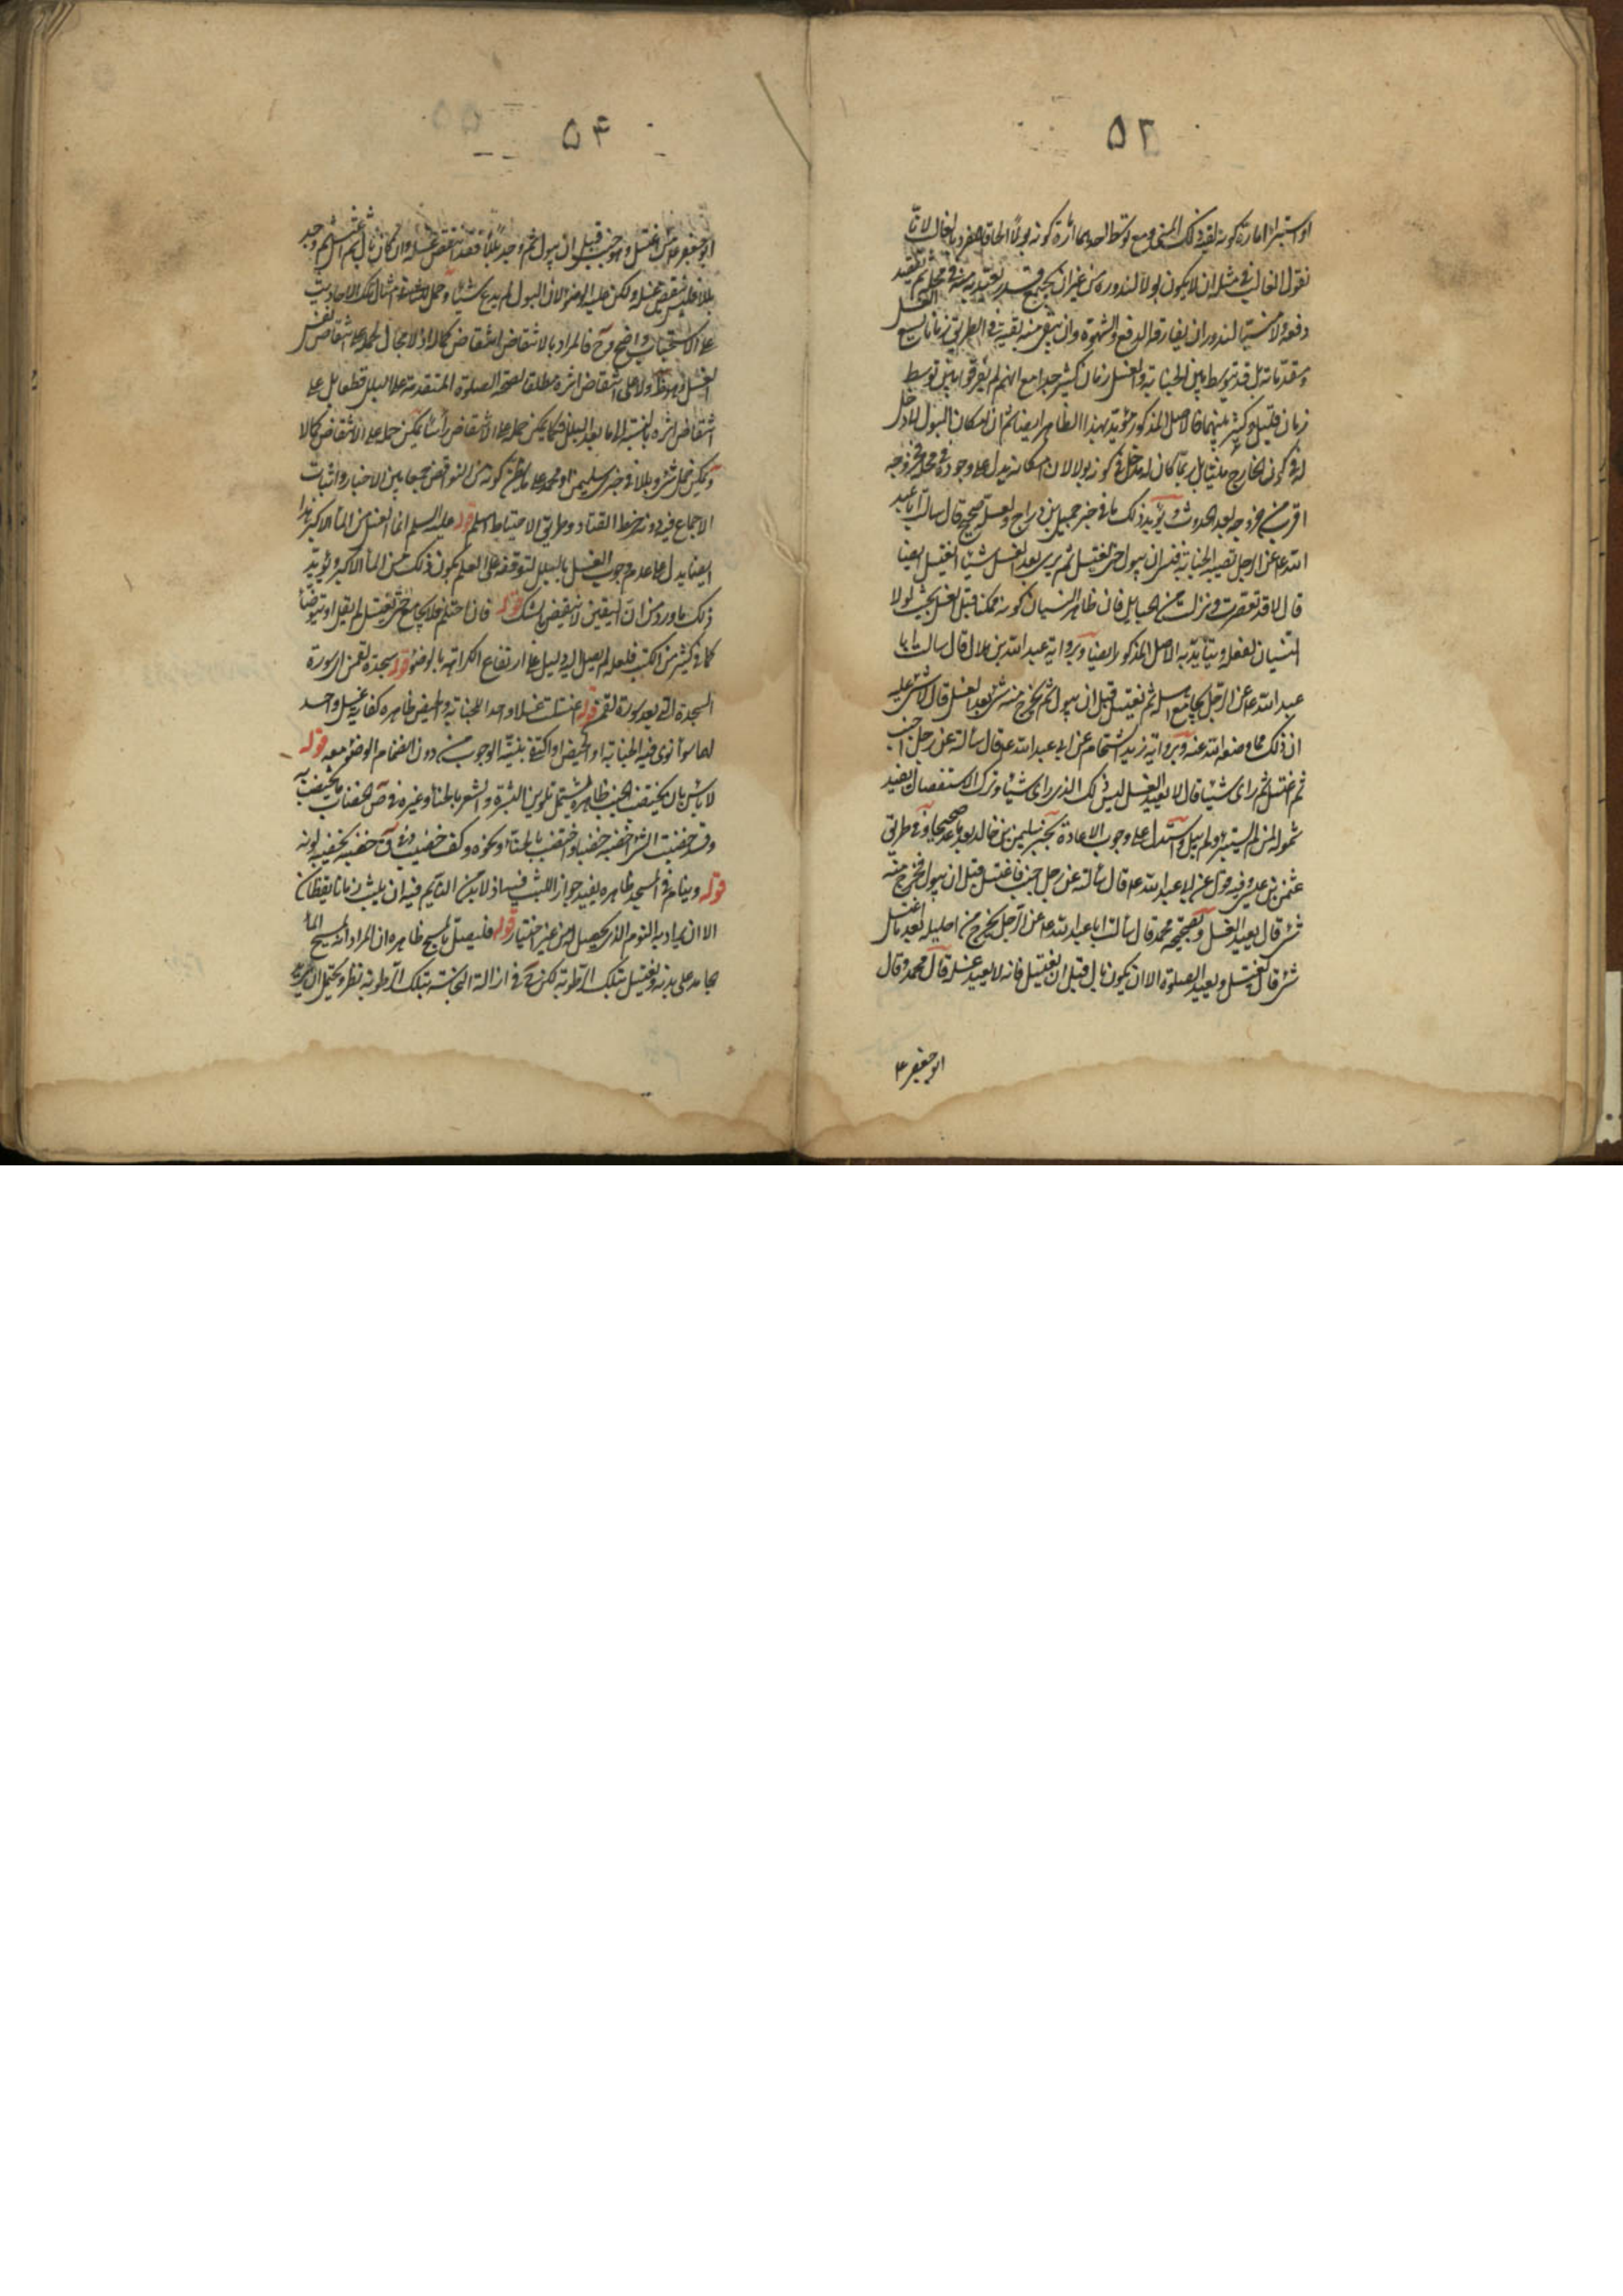 ۵۲
او استبرا امارة كونه بقية ذلك المنى ومع توسط احدهما امارة كونه بولا الحاقا للفرد بالغالب لانا
نقول الغالب في مثله ان لا يكون بولا لندوره من غير ان يجتمع قدر يعتد به منه في محله ثم
دفعه ولا منيا لندور ان يفارق الدفع والشهوة وان يبقى منه بقية في الطريق زمانا يسع الغسل
ومقدماته بل قد يتوسط بين الجنابة والغسل زمان كثير جدا مع انهم لم يفرقوا بين توسط
زمان قليل وكثير بينهما فالاصل المذكور مؤيد بهذا الظاهر ايضا ثم ان امكان البول لا دخل
له في كون الخارج منيا بل ربما كان له مدخل في كونه بولا لان امكانه يدل على وجوده في محله فخروجه
اقرب من خروجه بعد الحدوث ويؤيد ذلك ما في خبر جميل بن دراج ولعله صحيح قال سالت ابا عبد
الله ع عن الرجل تصيبه الجنابة فنسى ان يبول حتى يغتسل ثم يرى بعد الغسل شيئا ايغتسل ايضا
قال لا قد تعصرت ونزلت من الحبايل فان ظاهر النسيان كونه ممكنا قبل الغسل بحيث لولا
النسيان لفعله ويتأيد به الاصل المذكور ايضا وبرواية عبد الله بن هلال قال سالت ابا
عبد الله ع عن الرجل يجامع اهله ثم يغتسل قبل ان يبول ثم يخرج منه شئ بعد الغسل قال لا شئ عليه
ان ذلك مما وضعه الله عنه وبرواية زيد الشحام عن ابى عبد الله ع قال سالته عن رجل اجنب
ثم اغتسل ثم راى شيئا قال لا يعيد الغسل ليس ذلك الذى راى شيئا وترك الاستفصال يفيد
شموله لمن لم يستبرئ ولم يبل واستدل على وجوب الاعادة بخبر سليمن بن خالد يعد صحيحا وفي طريق
عثمن بن عيسى وفيه قول عن ابى عبد الله ع قال سالته عن رجل اجنب فاغتسل قبل ان يبول فخرج منه
شئ قال يعيد الغسل وبصحيحة محمد قال سالت ابا عبد الله ع عن الرجل يخرج من احليله بعد ما اغتسل
شئ قال يغتسل ويعيد الصلوة الا ان يكون بال قبل ان يغتسل فانه لا يعيد غسله قال محمد وقال
ابو جعفر ع
۵۴
ابو جعفر ع من اغتسل وهو جنب قبل ان يبول ثم وجد بللا فقد انتقض غسله وان كان بال ثم اغتسل ثم وجد
بللا فليس ينقض غسله ولكن عليه الوضوء لان البول لم يدع شيئا وحمل امثال تلك الاحاديث
على الاستحباب واضح وح فالمراد بالانتقاض انتقاض كماله اذ لا مجال لحمله على انتقاض نفس
الغسل وهو ظ ولا على انتقاض اثره مطلقا لصحة الصلوة المتقدمة على البلل قطعا بل على
انتقاض اثره بالنسبة الى ما بعد البلل فكما يمكن حمله على الانتقاض راسا يمكن حمله على الانتقاض كمالا
ويمكن حمل شئ وبللا في خبر سليمن ومحمد على ما يظن كونه من النواقض جمعا بين الاخبار واثبات
الاجماع فيه دونه خرط القتاد وطريق الاحتياط اسلم قوله عليه السلم انما الغسل من الماء الاكبر هذا
ايضا يدل على عدم وجوب الغسل بالبلل لتوقفه على العلم بكون ذلك من الماء الاكبر ويؤيد
ذلك ما ورد من ان اليقين لا ينقضه الشك قوله فان احتلم فلا يجامع حتى يغتسل لم يقل او يتوضأ
كما في كثير من الكتب فلعله لم يصل اليه دليل على ارتفاع الكراهة بالوضوء قوله سجدة لقمن اى سورة
السجدة التي بعد سورة لقمن قوله اغتسلت غسلا واحدا للجنابة والحيض ظاهره كفاية غسل واحد
لهما سواء نوى فيه الجنابة او الحيض او اكتفى بنية الوجوب من دون انضمام الوضوء معه قوله
لا باس بان يختضب الجنب ظاهره يشتمل تلوين البشرة والشعر بالحناء وغيره في ص الخضاب ما يختضب به
وقد خضبت الشئ اخضبه خضبا واختضب بالحناء ونحوه وكف خضيب وفي ق خضبه يخضبه لونه
قوله وينام في المسجد ظاهره يفيد جواز اللبث فيه اذ لا بد من النايم فيه ان يلبث زمانا يقظان
الا ان يراد به النوم الذى يحصل له من غير اختيار قوله فليصل بالمسح ظاهره ان المراد المسح الماء
جامد على بدنه ويغتسل بتلك الرطوبة لكن ح في ازالة النجاسة بتلك الرطوبة نظر ويحتمل ان يريد